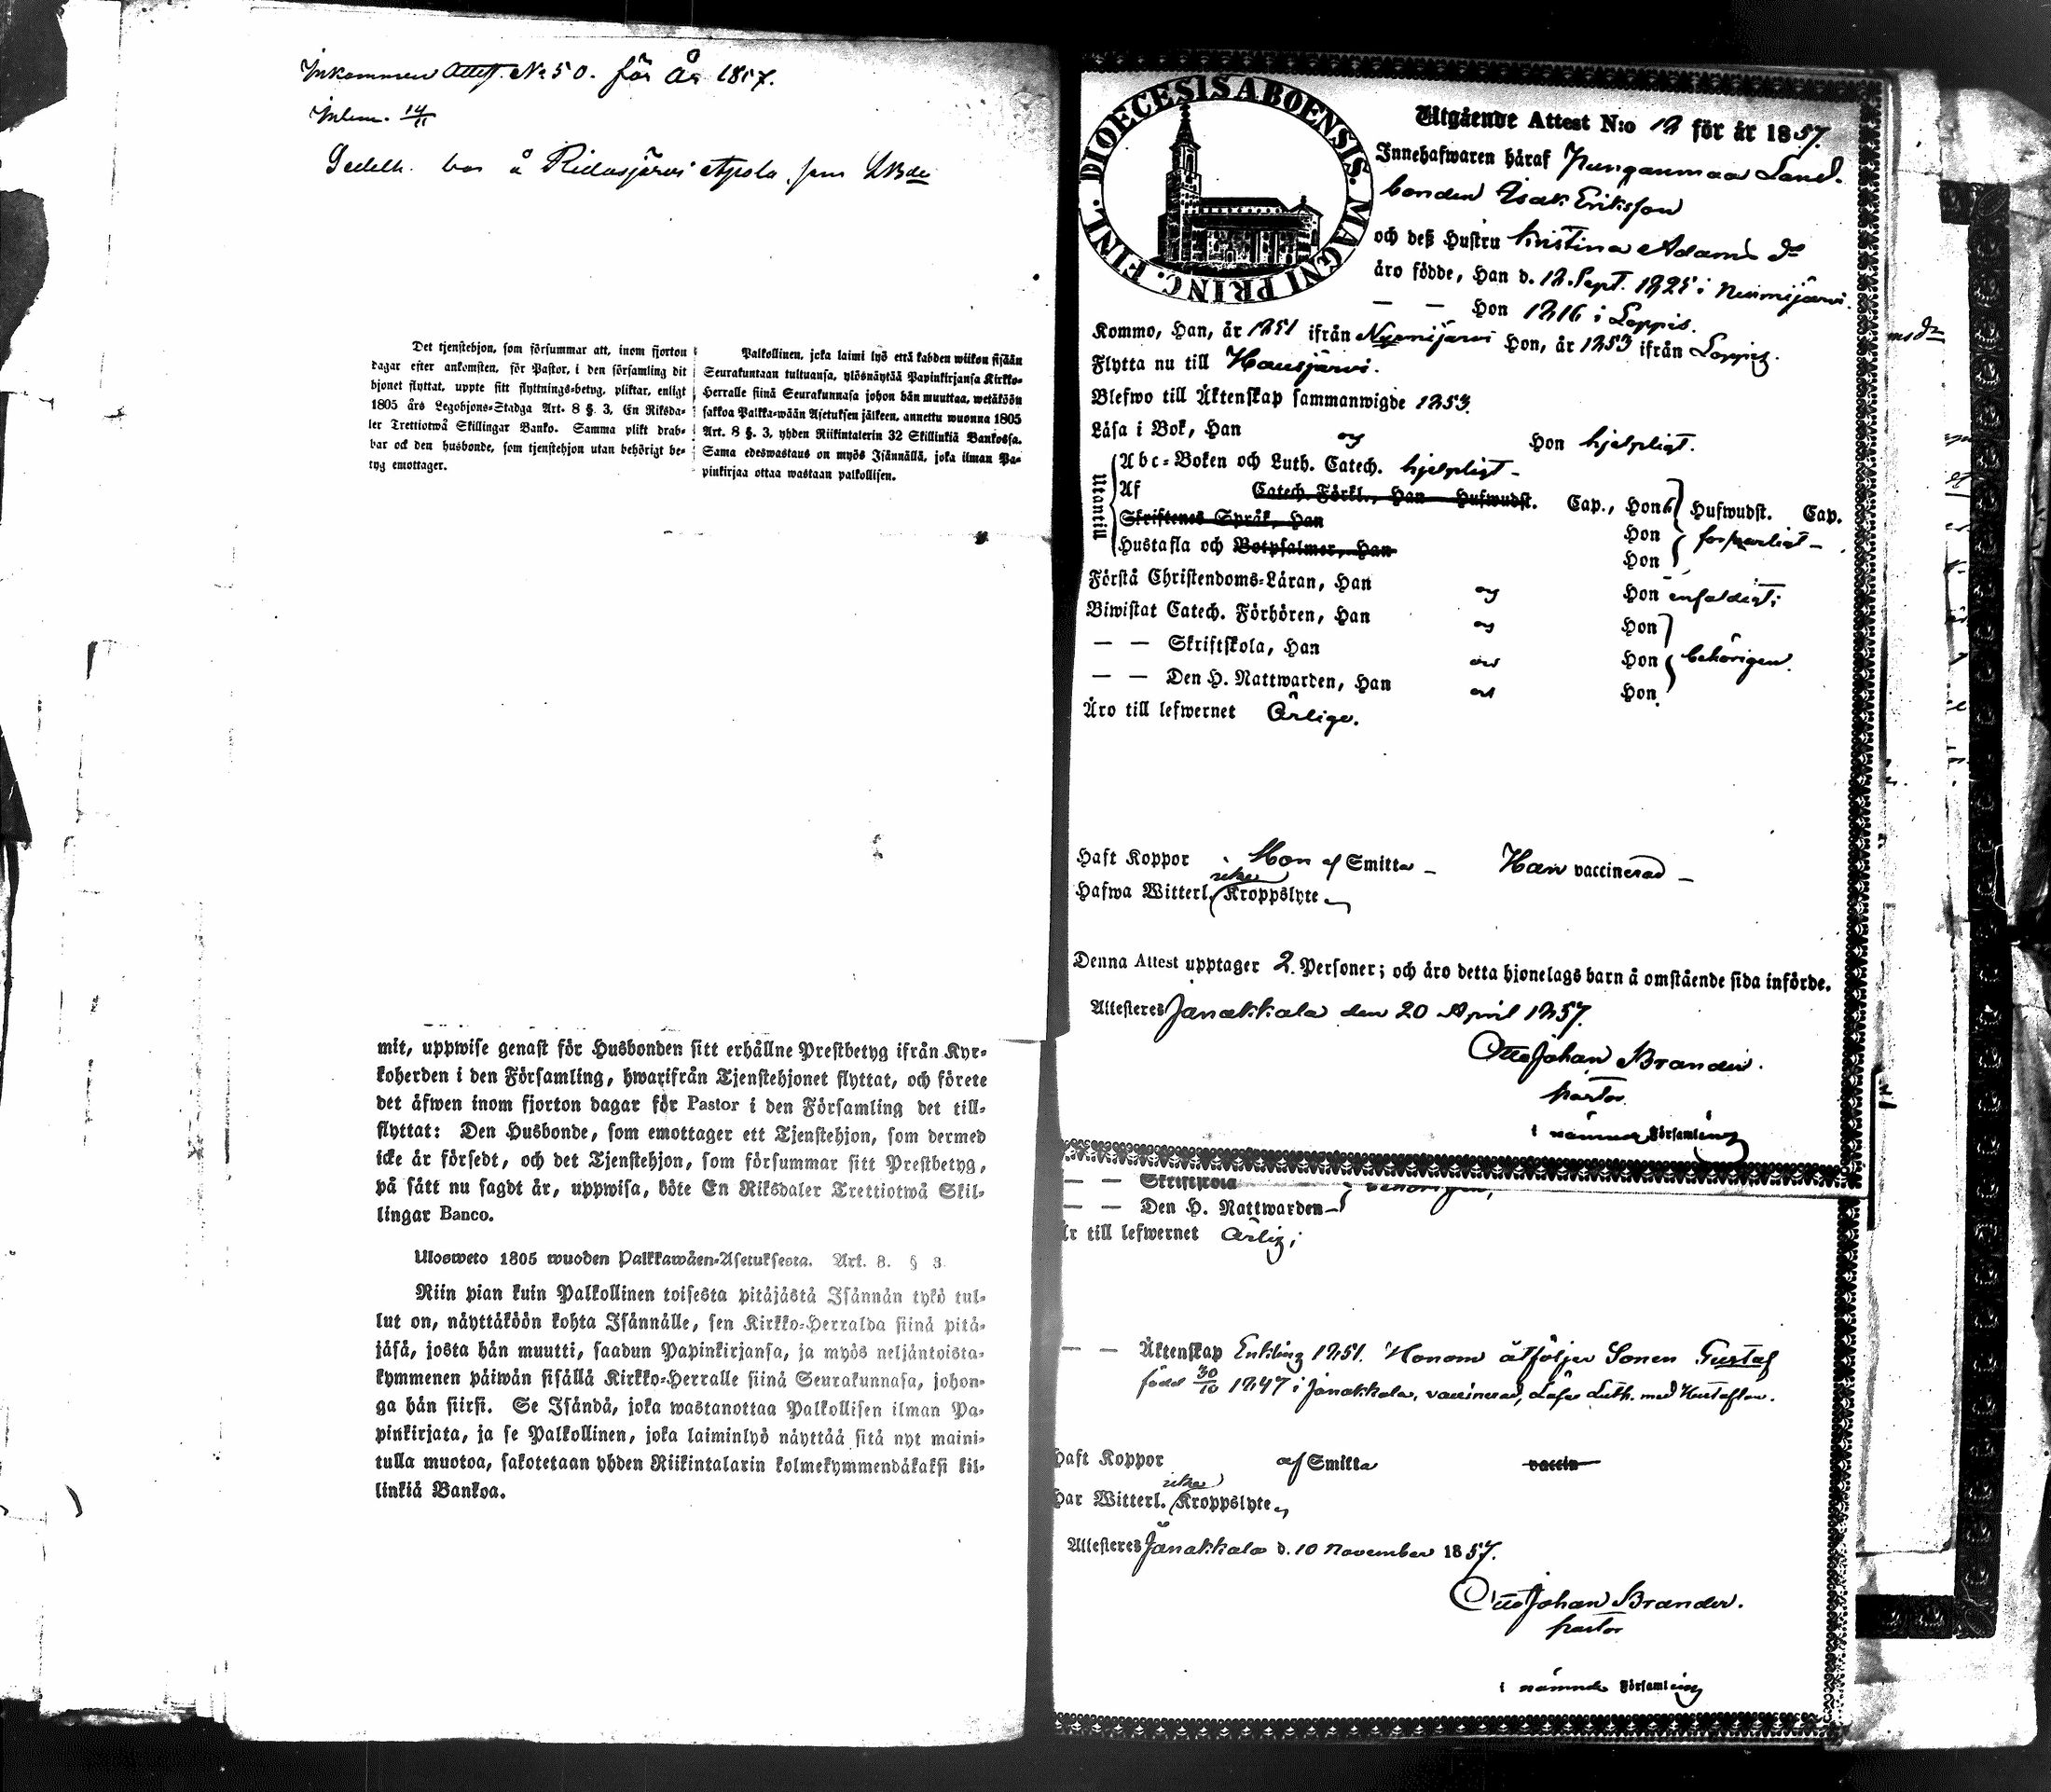 Inkommen Attest. No 50. för År 1857.
Inlem. 14/11
Sedelh. bor å Ridasjärvi
Det tjenstehjon, som försummar att, inom fjorton
dagar efter ankomsten, för Pastor, i den församling dit
hjonet flyttat, uppte sitt flyttnings-betyg, pliktar, enligt
1805 års Legohjons-Stadga Art. 8 §. 3, En Riksda-
ler Trettiotwå Skillingar Banko. Samma plikt drab-
bar ock den husbonde, som tjenstehjon utan behörigt be-
tyg emottager.
Palkollinen, joka laimi lyö että kahden wiikon sisään
Seurakuntaan tultuansa, ylösnäytää Papinkirjansa Kirkko-
Herralle siinä Seurakunnasa johon hän muuttaa, wetäköön
sakkoa Palkka-wään Asetuksen jälkeen, annettu wuonna 1805
Art. 8 §. 3, yhden Riikintalerin 32 Skillinkiä Bankossa.
Sama edeswastaus on myös Isännällä, joka ilman Pa-
pinkirjaa ottaa wastaan palkollisen.
mit, uppwise genast för Husbonden sitt erhållne Prestbetyg ifrån Kyr-
koherden i den Församling, hwarifrån Tjenstehjonet flyttat, och förete
det äfwen inom fjorton dagar för Pastor i den Församling det till-
flyttat: Den Husbonde, som emottager ett Tjenstehjon, som dermed
icke är försedt, och det Tjenstehjon, som försummar sitt Prestbetyg,
på sätt nu sagdt är, uppwisa, böte En Riksdaler Trettiotwå Skil-
lingar Banco.
Ulosweto 1805 wuoden Palkkawäen-Asetuksesta. Art. 8. § 3
Niin pian kuin Palkollinen toisesta pitäjästä Isännän tykö tul-
lut on, näyttäköön kohta Isännälle, sen Kirkko-Herralda siinä pitä-
jäsä, josta hän muutti, saadun Papinkirjansa, ja myös neljäntoista-
kymmenen päiwän sisällä Kirkko-Herralle siinä Seurakunnasa, johon-
ga hän siirsi. Se Isändä, joka wastanottaa Palkollisen ilman Pa-
pinkirjata, ja se Palkollinen, joka laiminlyö näyttää sitä nyt maini-
tulla muotoa, sakotetaan yhden Riikintalarin kolmekymmendäkaksi kil-
linkiä Bankoa.
DIOECESIS ABOENSIS. MAGNI PRINC. FINL.
Utgående Attest N:o 12 för år 1857.
Innehafwaren häraf Punganmaa Land-
bonden Isak Eriksson
och deß Hustru Kristina Adams dr
äro födde, Han d. 12. Sept. 1825 i Nurmijärvi.
— — Hon 1816 i Loppis.
Kommo, Han, år 1851 ifrån Nurmijärvi Hon, år 1853 ifrån Loppis.
Flytta nu till Hausjärvi.
Blefwo till Äktenskap sammanwigde 1853.
Läsa i Bok, Han og Hon hjelpligt.
Utantill
Abc-Boken och Luth. Catech. hjelpligt —
Af Catech. Förkl., Han Hufwudst. Cap., Hon Hufwudst. Cap.
Skriftenes Språk, Han Hon försvarligt —
Hustafla och Botpsalmer, Han Hon
Förstå Christendoms-Läran, Han og Hon enfaldigt;
Biwistat Catech. Förhören, Han og Hon
— — Skriftskola, Han Hon behörigen.
— — Den H. Nattwarden, Han Hon
Äro till lefwernet Ärlige.
Haft Koppor Hon af Smitta — Han vaccinerad —
Hafwa Witterl. icke Kroppslyte
Denna Attest upptager 2. Personer; och äro detta hjonelags barn å omstående sida införde.
Attesteres Janakkala den 20 April 1857.
Otto Johan Brander.
pastor
i nämnde Församling
— — Skriftskola behörigen;
— — Den H. Nattwarden —
Är till lefwernet Ärlig;
— — Äktenskap Enkling 1851. Honom åtföljer Sonen Gustaf
född 30/10 1847 i Janakkala, vaccinerad, Läser Luth. med Hustaflan.
Haft Koppor af Smitta vaccin
Har Witterl. icke Kroppslyte
Attesteres Janakkala d. 10 November 1857.
Otto Johan Brander.
pastor
i nämnde Församling